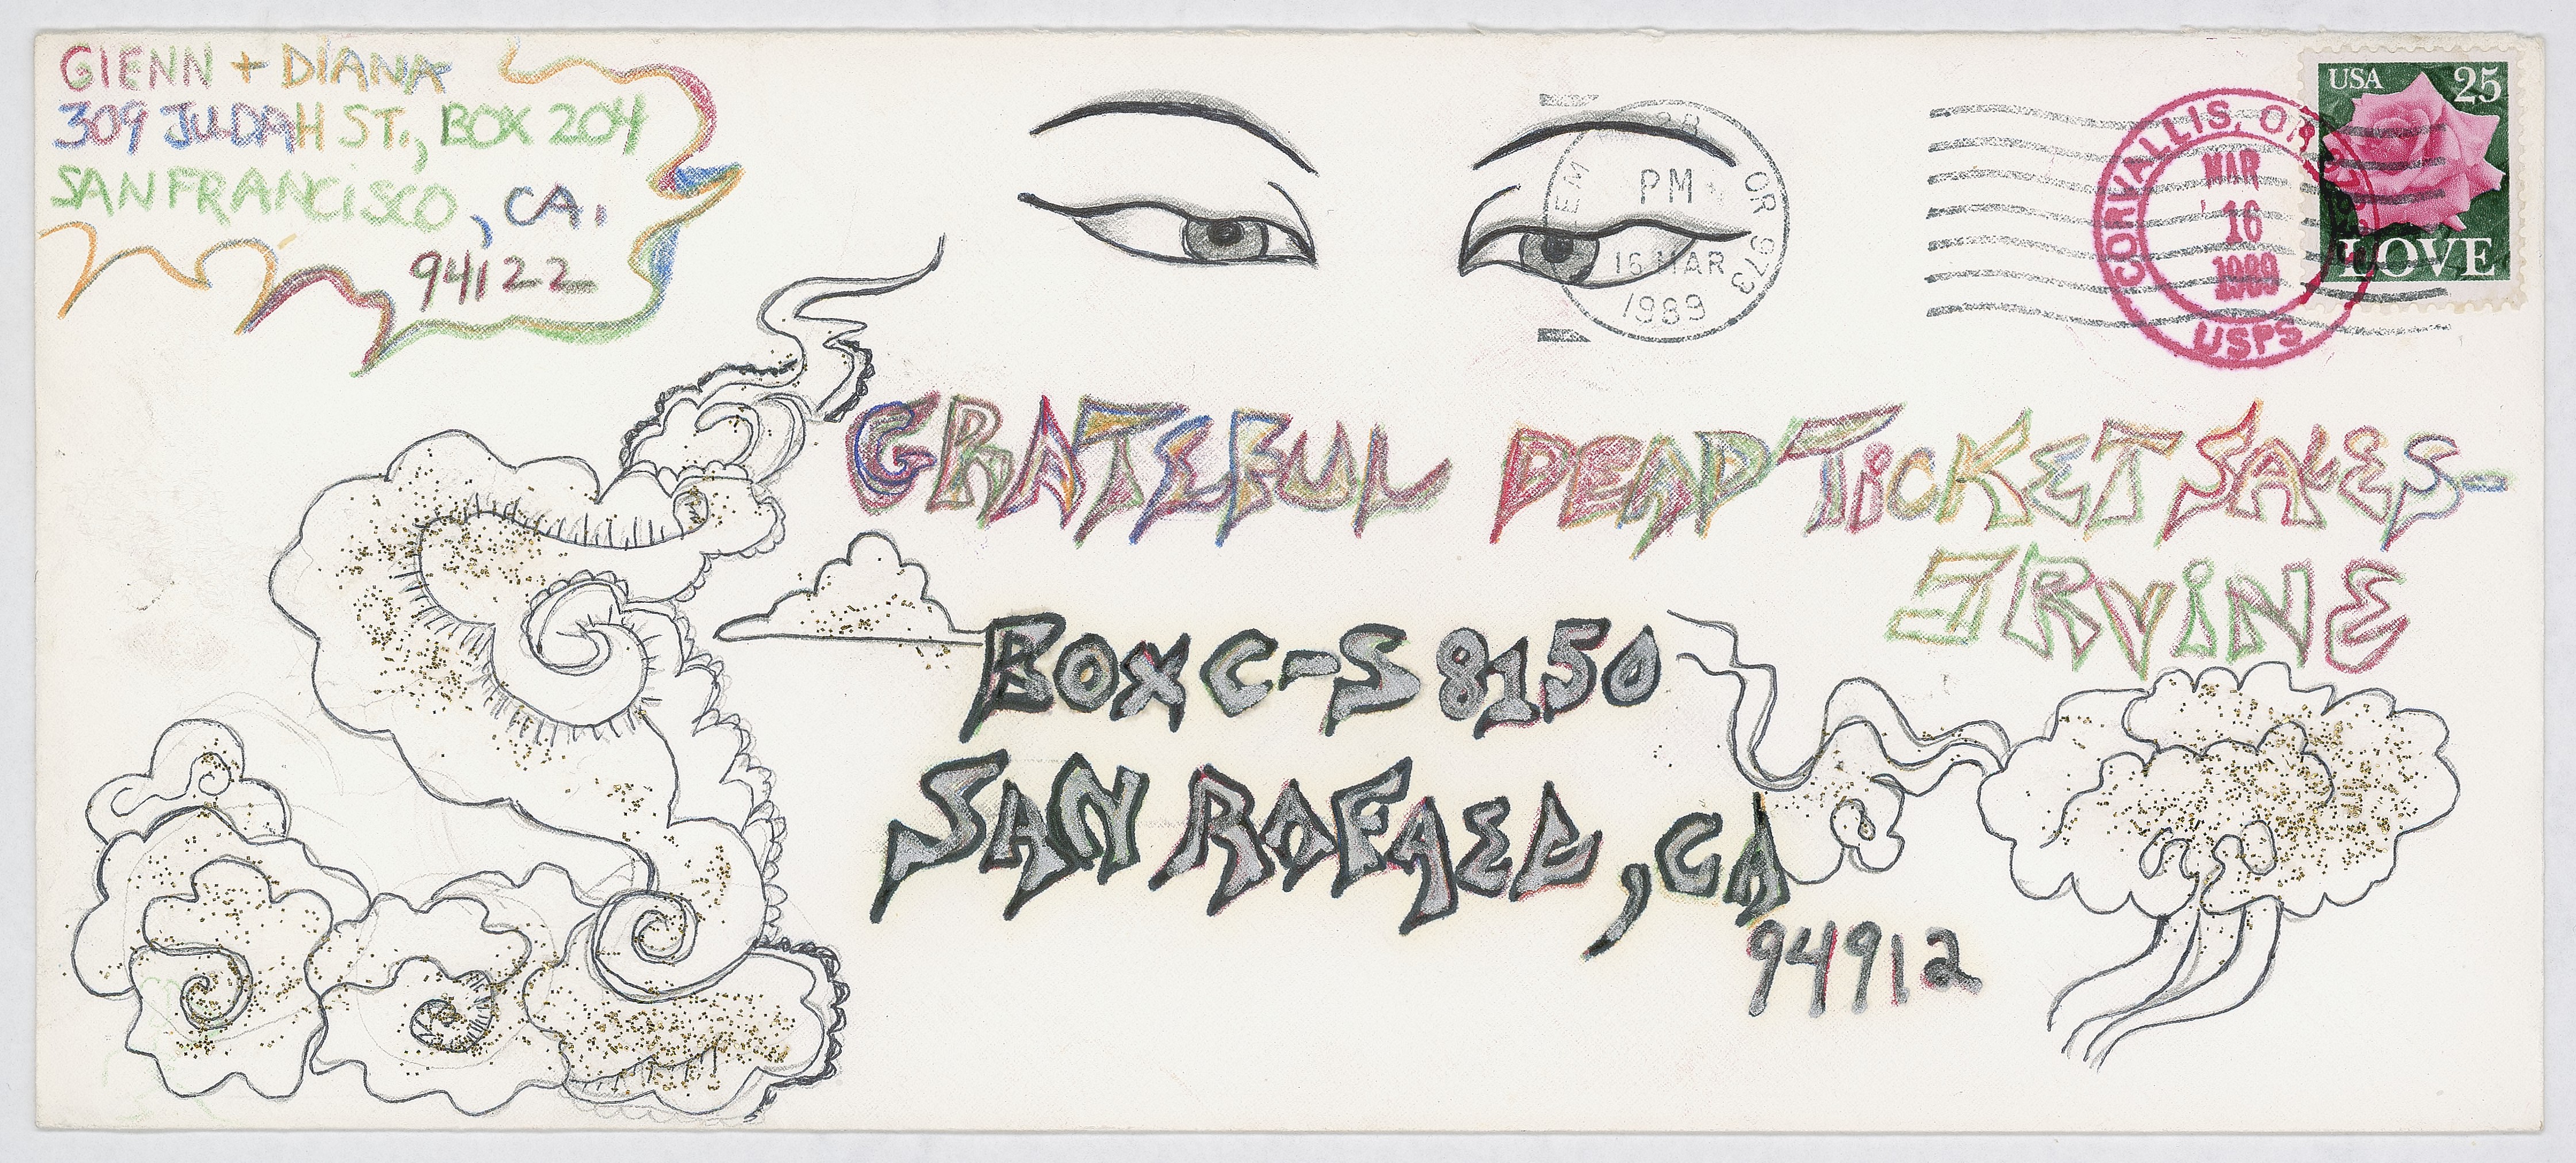 GlENN + DIANA
309 JUDAH ST., BOX 204
SAN FRANCISCO, CA.
94122
PM
OR 973
16 MAR
1989
CORVALLIS, OR
MAR
16
1989
USPS
USA 25
LOVE
GRATEFUL DEAD TiCKET SALES-
IRViNE
BOX C-S 8150
SAN RAFAEL, CA
94912